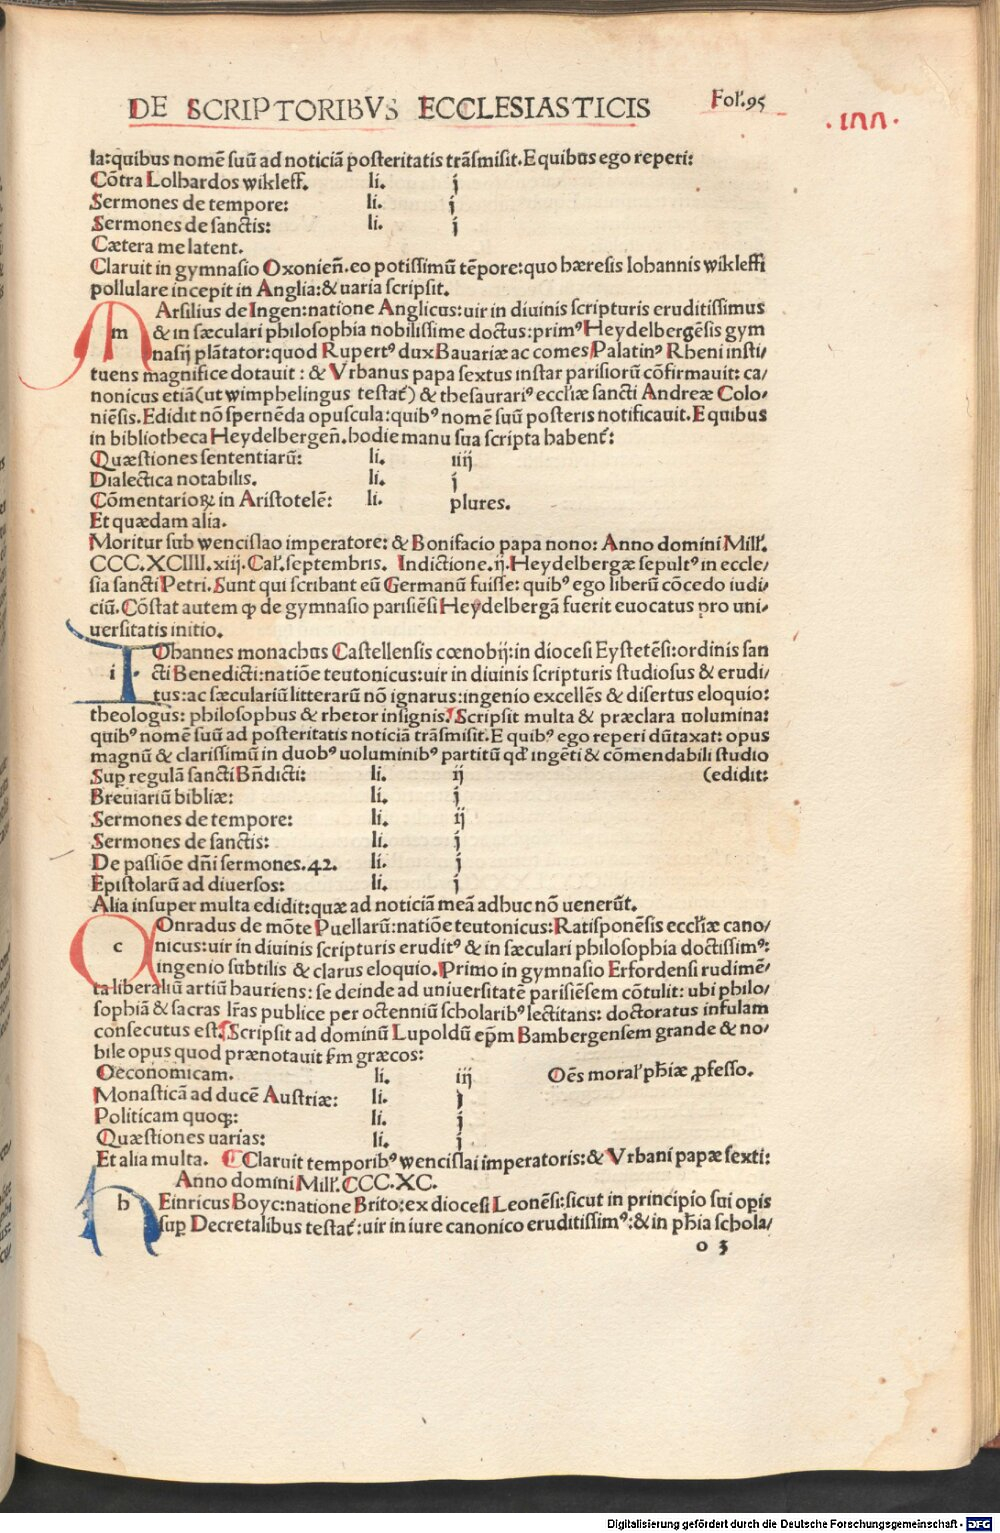 DE SCRIPTORIBVS ECCLESIASTICIS Fol.95
la:quibus nomē suū ad noticiā posteritatis trāsmisit.E quibus ego reperi:
Cōtra Lolhardos wikleff. li. j
Sermones de tempore: li. j
Sermones de sanctis: li. j
Cætera me latent.
Claruit in gymnasio Oxonien̄.eo potissimū tēpore:quo hæresis Iohannis wikleffi
pollulare incepit in Anglia:& uaria scripsit.
m Arsilius de Ingen:natione Anglicus:uir in diuinis scripturis eruditissimus
& in sæculari philosophia nobilissime doctus:primꝰ Heydelbergēsis gym
nasij plātator:quod Rupertꝰ dux Bauariæ ac comes Palatinꝰ Rheni insti/
tuens magnifice dotauit : & Vrbanus papa sextus instar parisiorū cōfirmauit: ca/
nonicus etiā(ut wimphelingus testat᷑) & thesaurariꝰ eccl̄iæ sancti Andreæ Colo/
niēsis.Edidit nō spernēda opuscula:quibꝰ nomē suū posteris notificauit.E quibus
in bibliotheca Heydelbergen̄.hodie manu sua scripta habent᷑:
Quæstiones sententiarū: li. iiij
Dialectica notabilis. li. j
Cōmentarioꝝ in Aristotelē: li. plures.
Et quædam alia.
Moritur sub wencislao imperatore: & Bonifacio papa nono: Anno domini Mill'.
CCC.XCIIII.xiij.Cal'.septembris. Indictione.ij.Heydelbergæ sepultꝰ in eccle/
sia sancti Petri.Sunt qui scribant eū Germanū fuisse: quibꝰ ego liberū cōcedo iudi/
ciū.Cōstat autem ꝙ de gymnasio parisiēsi Heydelbergā fuerit euocatus pro uni/
uersitatis initio.
i Ohannes monachus Castellensis cœnobij:in diocesi Eystetēsi:ordinis san
cti Benedicti:natiōe teutonicus:uir in diuinis scripturis studiosus & erudi/
tus:ac sæculariū litterarū nō ignarus:ingenio excellēs & disertus eloquio:
theologus: philosophus & rhetor insignis.Scripsit multa & præclara uolumina:
quibꝰ nomē suū ad posteritatis noticiā trāsmisit.E quibꝰ ego reperi dūtaxat: opus
magnū & clarissimū in duobꝰ uoluminibꝰ partitū qđ ingēti & cōmendabili studio
Suꝑ regulā sancti Bn̄dicti: li. ij (edidit:
Breuiariū bibliæ: li. j
Sermones de tempore: li. ij
Sermones de sanctis: li. j
De passiōe dn̄i sermones.42. li. j
Epistolarū ad diuersos: li. j
Alia insuper multa edidit:quæ ad noticiā meā adhuc nō uenerūt.
c Onradus de mōte Puellarū:natiōe teutonicus:Ratisponēsis eccl̄iæ cano/
nicus:uir in diuinis scripturis eruditꝰ & in sæculari philosophia doctissimꝰ:
ingenio subtilis & clarus eloquio.Primo in gymnasio Erfordensi rudimē/
ta liberaliū artiū hauriens: se deinde ad uniuersitatē parisiēsem cōtulit: ubi philo/
sophiā & sacras lr̄as publice per octenniū scholaribꝰ lectitans: doctoratus insulam
consecutus est.Scripsit ad dominū Lupoldū ep̄m Bambergensem grande & no/
bile opus quod prænotauit ẜm græcos:
Oeconomicam. li. iij Oēs moral' ph̄iæ ꝓfesso.
Monasticā ad ducē Austriæ: li. j
Politicam quoqꝫ: li. j
Quæstiones uarias: li. j
Et alia multa. Claruit temporibꝰ wencislai imperatoris:& Vrbani papæ sexti:
Anno domini Mill'.CCC.XC.
h Einricus Boyc:natione Brito:ex diocesi Leonēsi:sicut in principio sui opis
suꝑ Decretalibus testat᷑:uir in iure canonico eruditissimꝰ:& in ph̄ia schola/
o 3
Digitalisierung gefördert durch die Deutsche Forschungsgemeinschaft - DFG